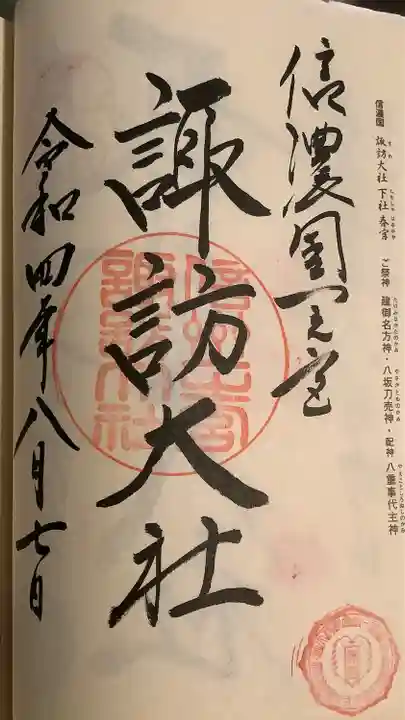 信濃国 諏訪大社 下社 春宮 ご祭神 建御名方神・八坂刀売神・配神 八重事代主神
信濃國一之宮
諏訪大社
令和四年八月七日